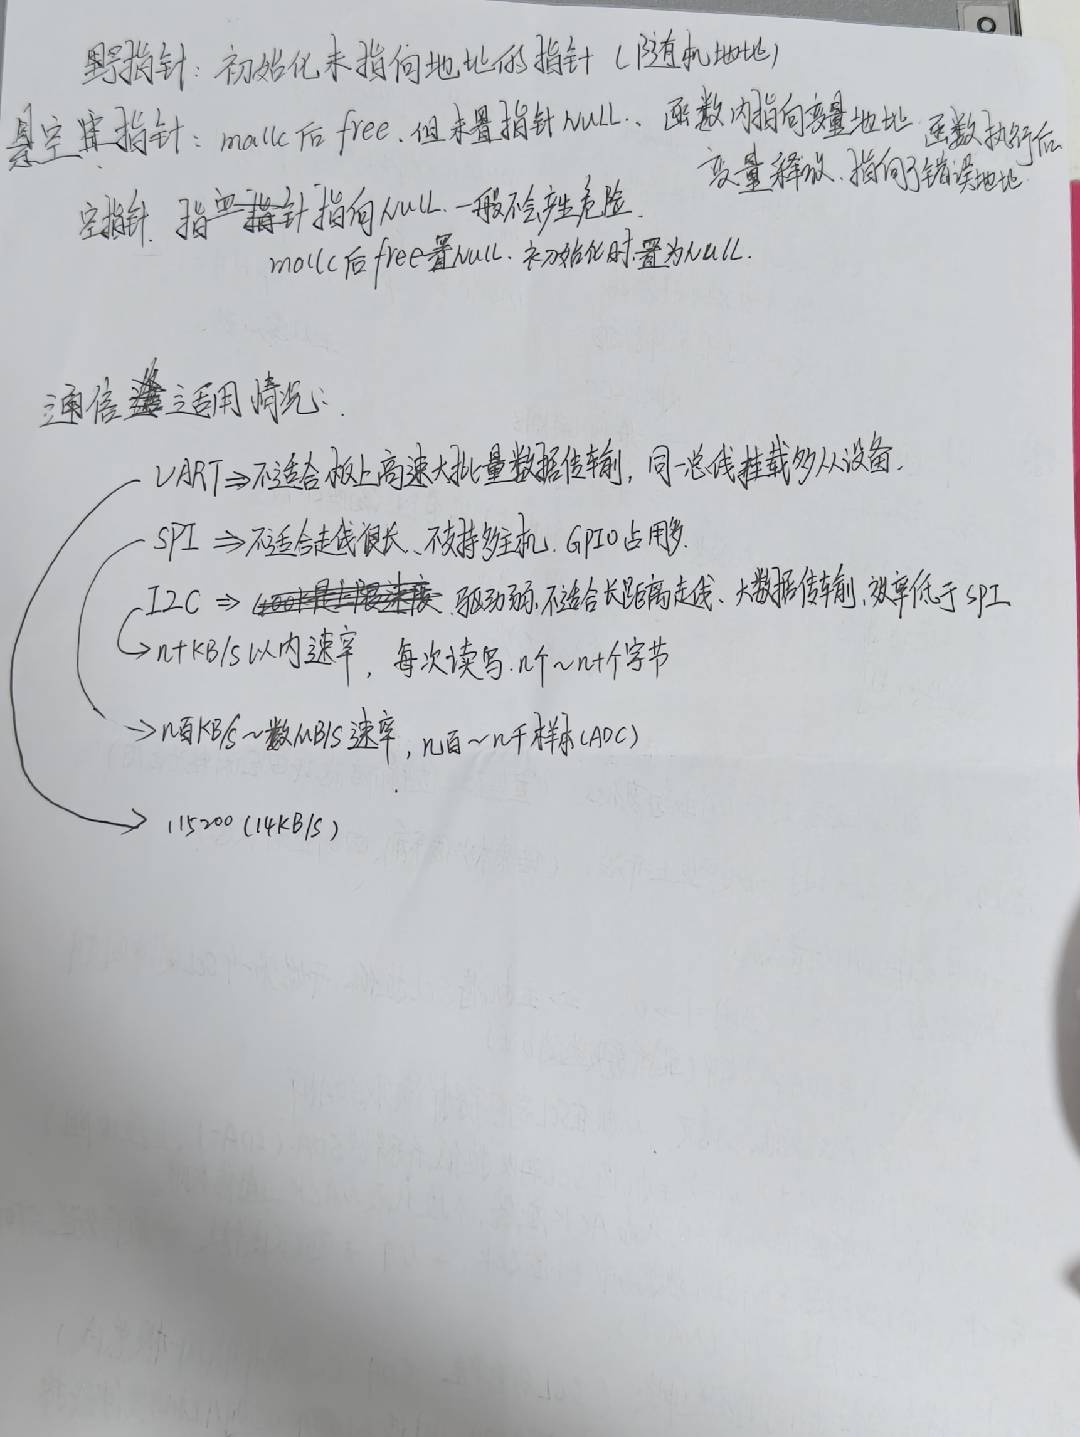 野指针：初始化未指向地址的指针（随机地址）
悬空指针：mallc后free.但未置指针NULL、函数内指向变量地址 函数执行后
变量释放.指向了错误地址
空指针.指针指向NULL.一般不会产生危险.
mallc后free置NULL.初始化时置为NULL.
通信适用情况：
UART⇒不适合板上高速大批量数据传输，同一总线挂载多从设备.
SPI⇒不适合走线很长、不支持多主机.GPIO占用多.
I2C⇒400k是上限速度.驱动弱.不适合长距离走线、大数据传输,效率低于SPI
→n十KB/S以内速率，每次读写.n个~n十个字节
→n百KB/S~数MB/S速率，n百~n千样本(ADC)
→115200(14KB/S)